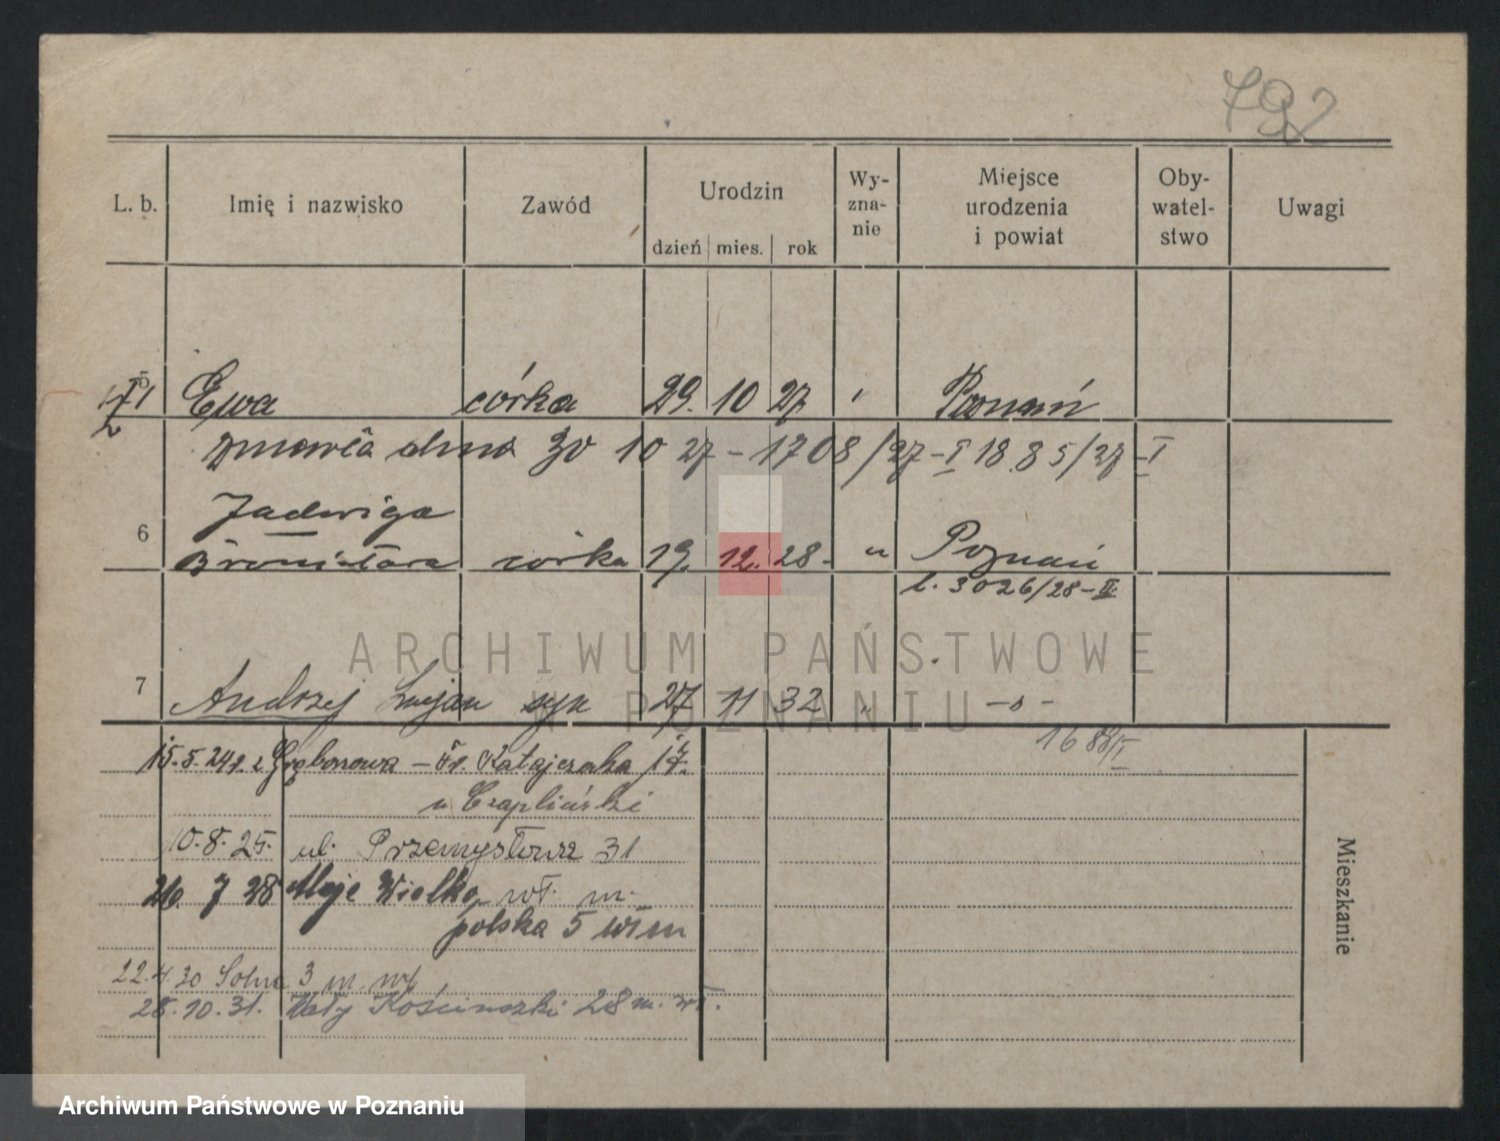 792
L. b. Imię i nazwisko Zawód Urodzin dzień mies. rok Wy-zna-nie Miejsce urodzenia i powiat Oby-watel-stwo Uwagi
5 Ewa córka 29. 10 27 " Poznań
zmarła dnia 30 10 27 – 1708/27 – I 18.85/27 – I
Jadwiga
6 Bronisława córka 19. 12. 28 – " Poznań
l. 3026/28 – II
7 Andrzej syn 27 11 32 " – " –
15.5.24 Grabonowa – Fr. Katajczaka 17.
u Czapliński
10.8.25. ul. Przemysłowa 31
26. 7 28 Aleje Wielko wł. m.
polska 5 wł m
22.4.30 Solna 3 m. wł
28.10.31. Kościuszki 28 m. wł.
Mieszkanie
ARCHIWUM PAŃSTWOWE
W POZNANIU
Archiwum Państwowe w Poznaniu